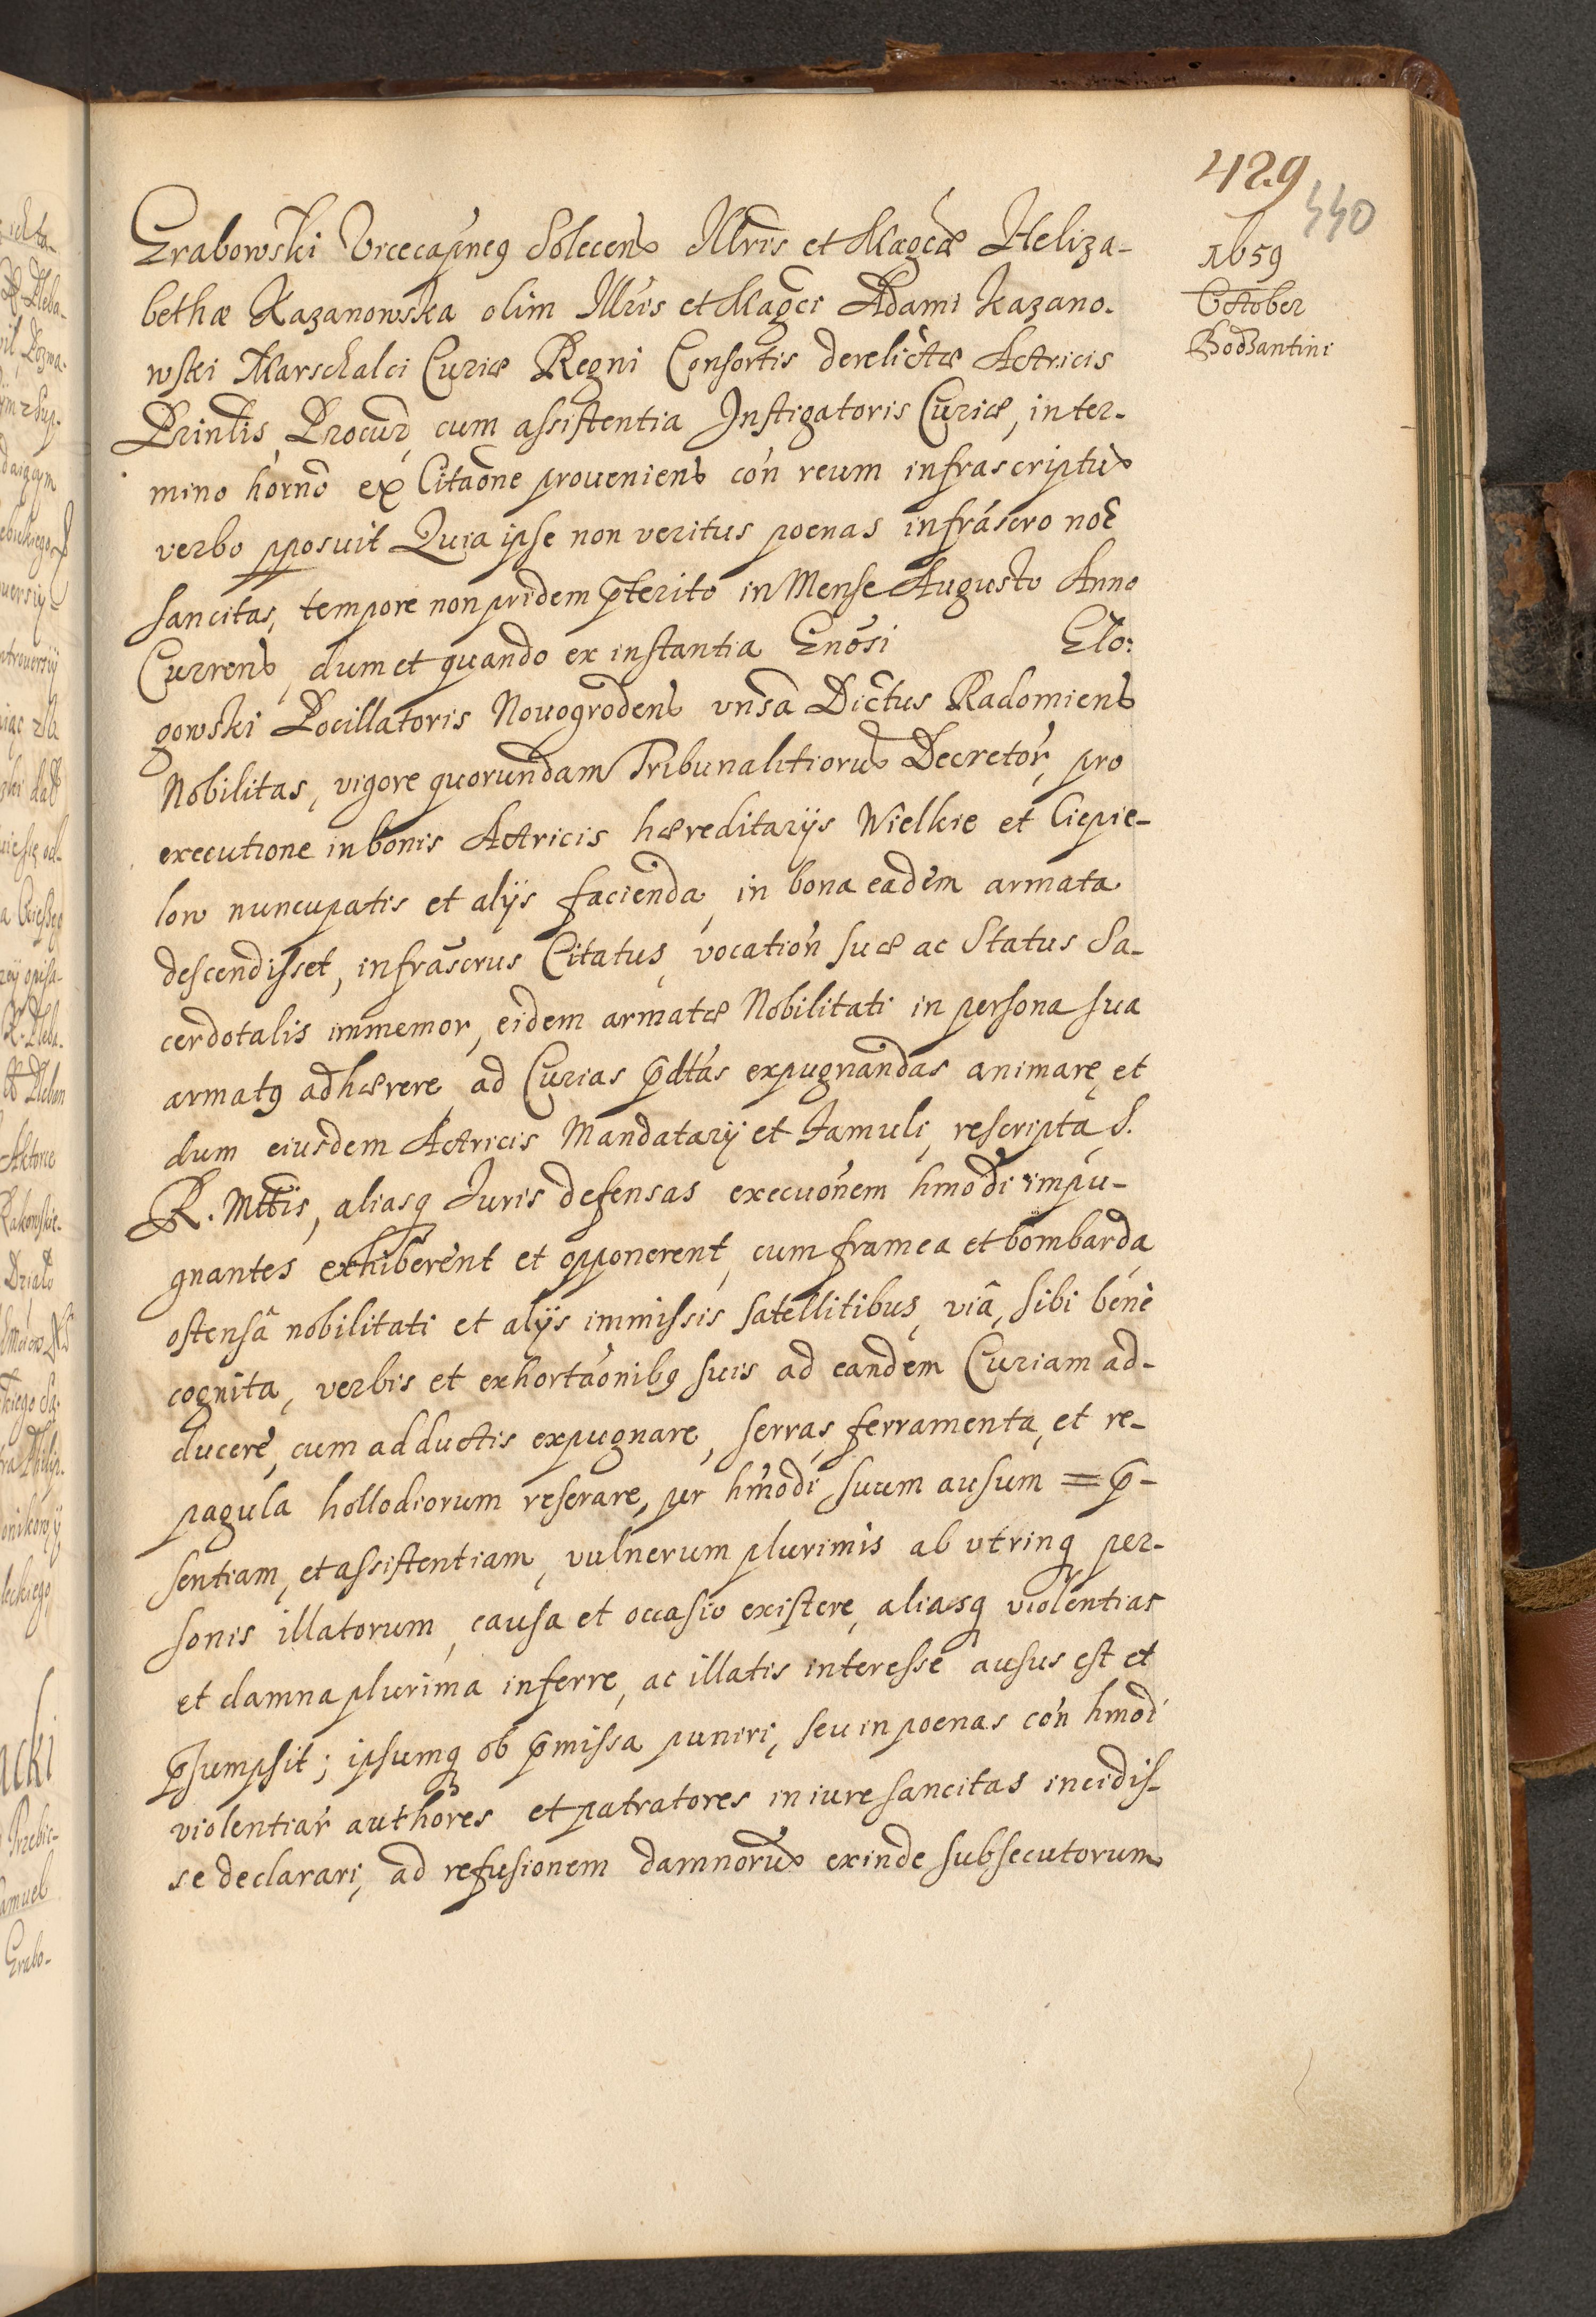 429
440
1659
October
Bodzantini
Grabowski Vicecapneg Solecens Illris et Magcæ Heliza-
bethæ Kazanowska olim Illris et Magci Adami Kazano-
wski Marschalci Curiæ Regni Consortis derelictæ Actricis
Prinlis, Procur, cum assistentia Instigatoris Curiæ, in ter-
mino horno ex Citaone proveniens con reum infrascriptu
verbo pposuit Quia ipse non veritus poenas infrascro noe
sancitas, tempore non pridem pterito in Mense Augusto Anno
Currens, dum et quando ex instantia Gnosi Glo:
gowski Pocillatoris Novogrodens vnsa Dictus Radomiens
Nobilitas, vigore quorundam Tribunalitioru Decretor, pro
executione in bonis Actricis hæreditarijs Wielkie et Ciepie-
low nuncupatis et alijs facienda, in bona eadem armata
descendisset, infrascrus Citatus, vocation suæ ac Status Sa-
cerdotalis immemor, eidem armatæ Nobilitati in persona sua
armatg adhærere, ad Curias pdtas expugnandas animare, et
dum eiusdem Actricis Mandatarij et Famuli, rescripta S.
R. Mttis, aliasq Iuris defensas execuonem hmodi impu-
gnantes exhiberent et opponerent, cum framea et bombarda
ostensâ nobilitati et alijs immissis satellitibus, viâ, sibi bene
cognita, verbis et exhortaonibg suis ad eandem Curiam ad-
ducere, cum adductis expugnare, serras, ferramenta, et re-
pagula hollodiorum reserare, per hmodi suum ausum = p-
sentiam, et assistentiam, vulnerum plurimis ab utrinq per-
sonis illatorum, causa et occasio existere, aliasq violentias
et damna plurima inferre, ac illatis interesse ausus est et
psumpsit; ipsumq ob pmissa puniri, seu in poenas con hmodi
violentiar authores et patratores in iure sancitas incidis-
se declarari, ad refusionem damnoru exinde subsecutorum